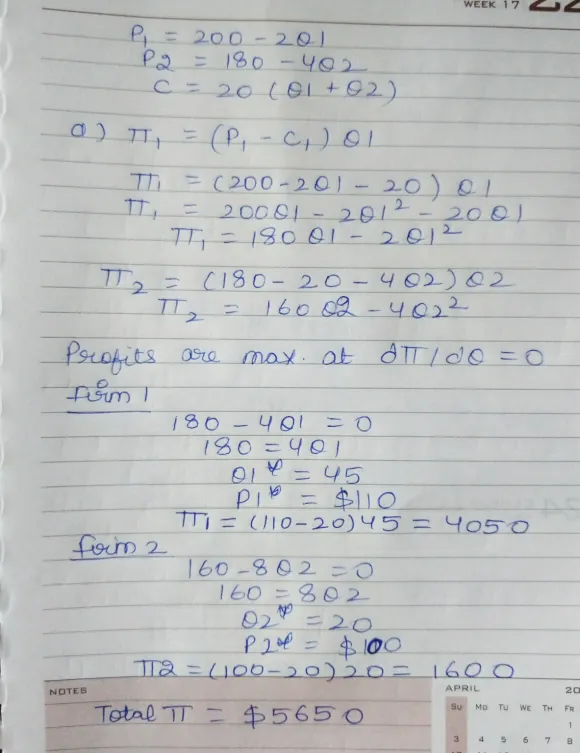 WEEK 17
P1 = 200 - 2Q1
P2 = 180 - 4Q2
C = 20 (Q1 + Q2)
a) π1 = (P1 - C1) Q1
π1 = (200-2Q1 - 20) Q1
π1 = 200Q1 - 2Q1² - 20Q1
π1 = 180Q1 - 2Q1²
π2 = (180 - 20 - 4Q2) Q2
π2 = 160Q2 - 4Q2²
Profits are max. at dπ/dQ = 0
firm 1
180 - 4Q1 = 0
180 = 4Q1
Q1* = 45
P1* = $110
π1 = (110-20)45 = 4050
firm 2
160 - 8Q2 = 0
160 = 8Q2
Q2* = 20
P2* = $100
π2 = (100-20)20 = 1600
NOTES
Total π = $5650
APRIL 20
Su Mo Tu We Th Fr
1
3 4 5 6 7 8